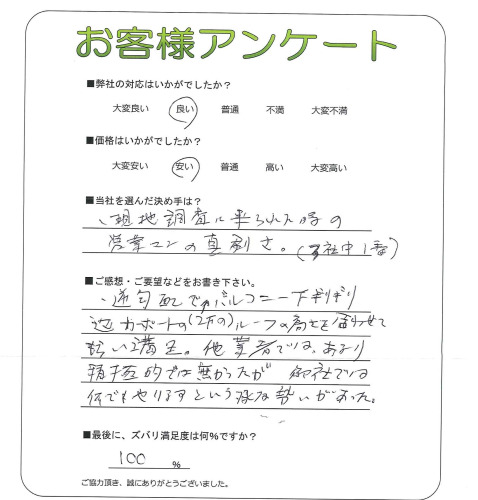 お客様アンケート
■弊社の対応はいかがでしたか？
大変良い 良い 普通 不満 大変不満
■価格はいかがでしたか？
大変安い 安い 普通 高い 大変高い
■当社を選んだ決め手は？
、現地調査に来られた時の
営業マンの真剣さ。(社中1番)
■ご感想・ご要望などをお書き下さい。
、逆勾配でバルコニー下ギリギリ
カーポートの(2方の)ルーフの高さを合わせて
満足。他業者では、あまり
積極的では無かったが 御社では
何でもやりますという様な勢いがあった。
■最後に、ズバリ満足度は何%ですか？
100 %
ご協力頂き、誠にありがとうございました。